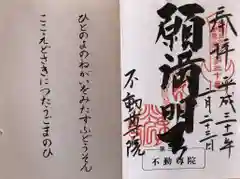 ひとのよのねがいをみたすふどうそん
こころどさきにつたうごまのひ
奉拝
平成三十年
二月二十三日
願満明王
不動尊院
不動尊院